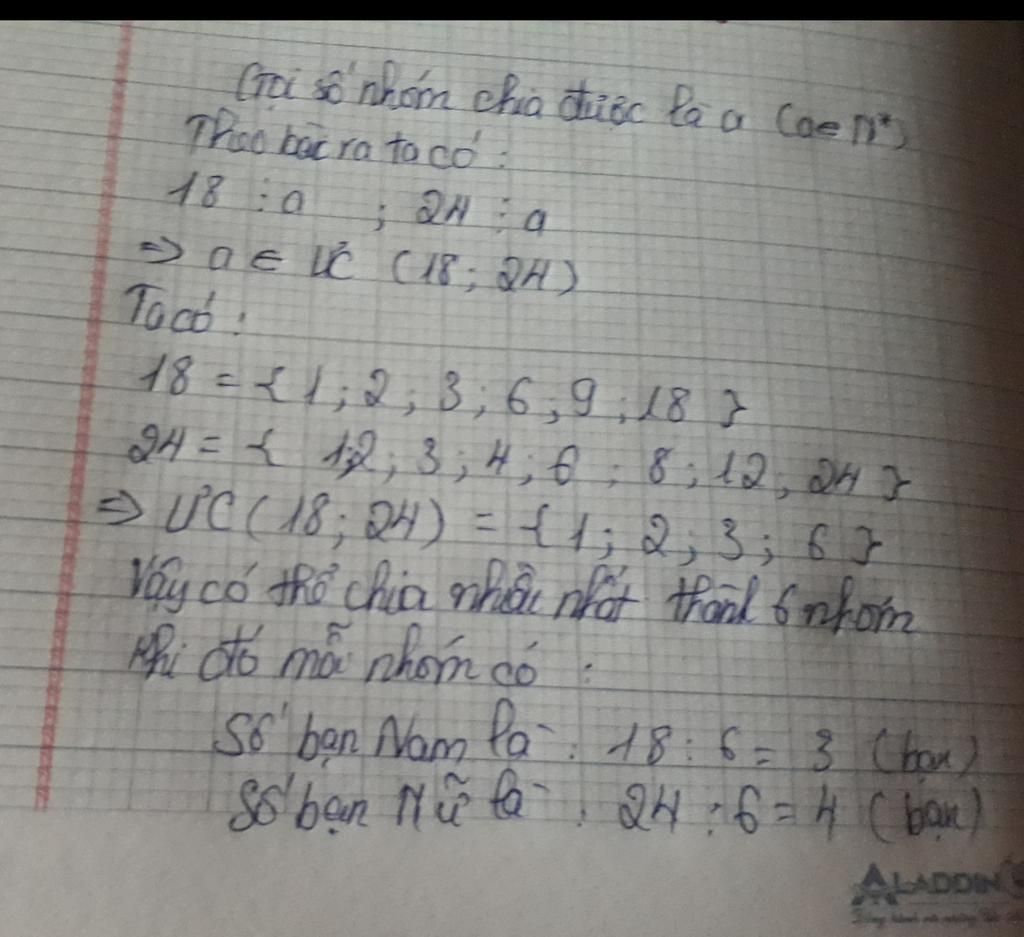 Gọi số nhóm chia được là a (a∈N*)
Theo bài ra ta có:
18 ⋮ a ; 24 ⋮ a
=> a ∈ ƯC (18; 24)
Ta có:
18 = { 1; 2; 3; 6; 9; 18 }
24 = { 1;2; 3; 4; 6; 8; 12; 24 }
=> ƯC(18; 24) = { 1; 2; 3; 6 }
Vậy có thể chia nhiều nhất thành 6 nhóm
Khi đó mỗi nhóm có :
Số bạn Nam là : 18 : 6 = 3 (bạn)
Số bạn Nữ là : 24 : 6 = 4 (bạn)
ALADDIN